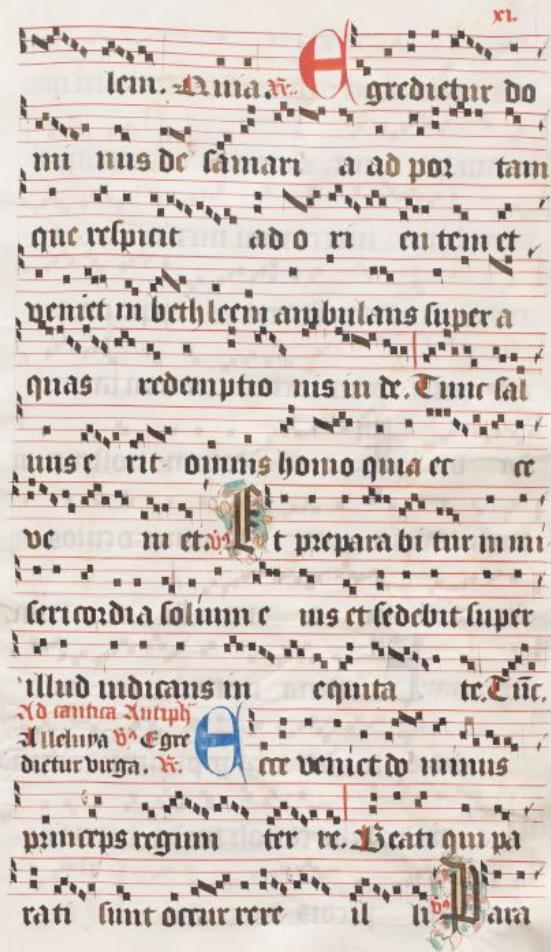 xi.
lem. Quia. R. Egredietur do
mi nus de samari a ad por tam
que respicit ad o ri en tem et
veniet in beth leem ambulans super a
quas redemptio nis iu de. Tunc sal
uus e rit omnis homo quia ec ce
ve ni et. V. Et preparabi tur in mi
sericordia solium e ius et sedebit super
illud iudicans in equita te. Tūc.
Ad cantica Antiph
Alleluya V. Egre
dietur virga. R. Ecce veniet do minus
princeps regum ter re. Beati qui pa
rati sunt occur rere il li V. Para